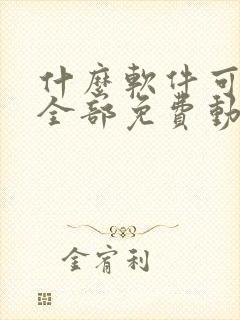 什麼軟件可
全部免費動
金宥利